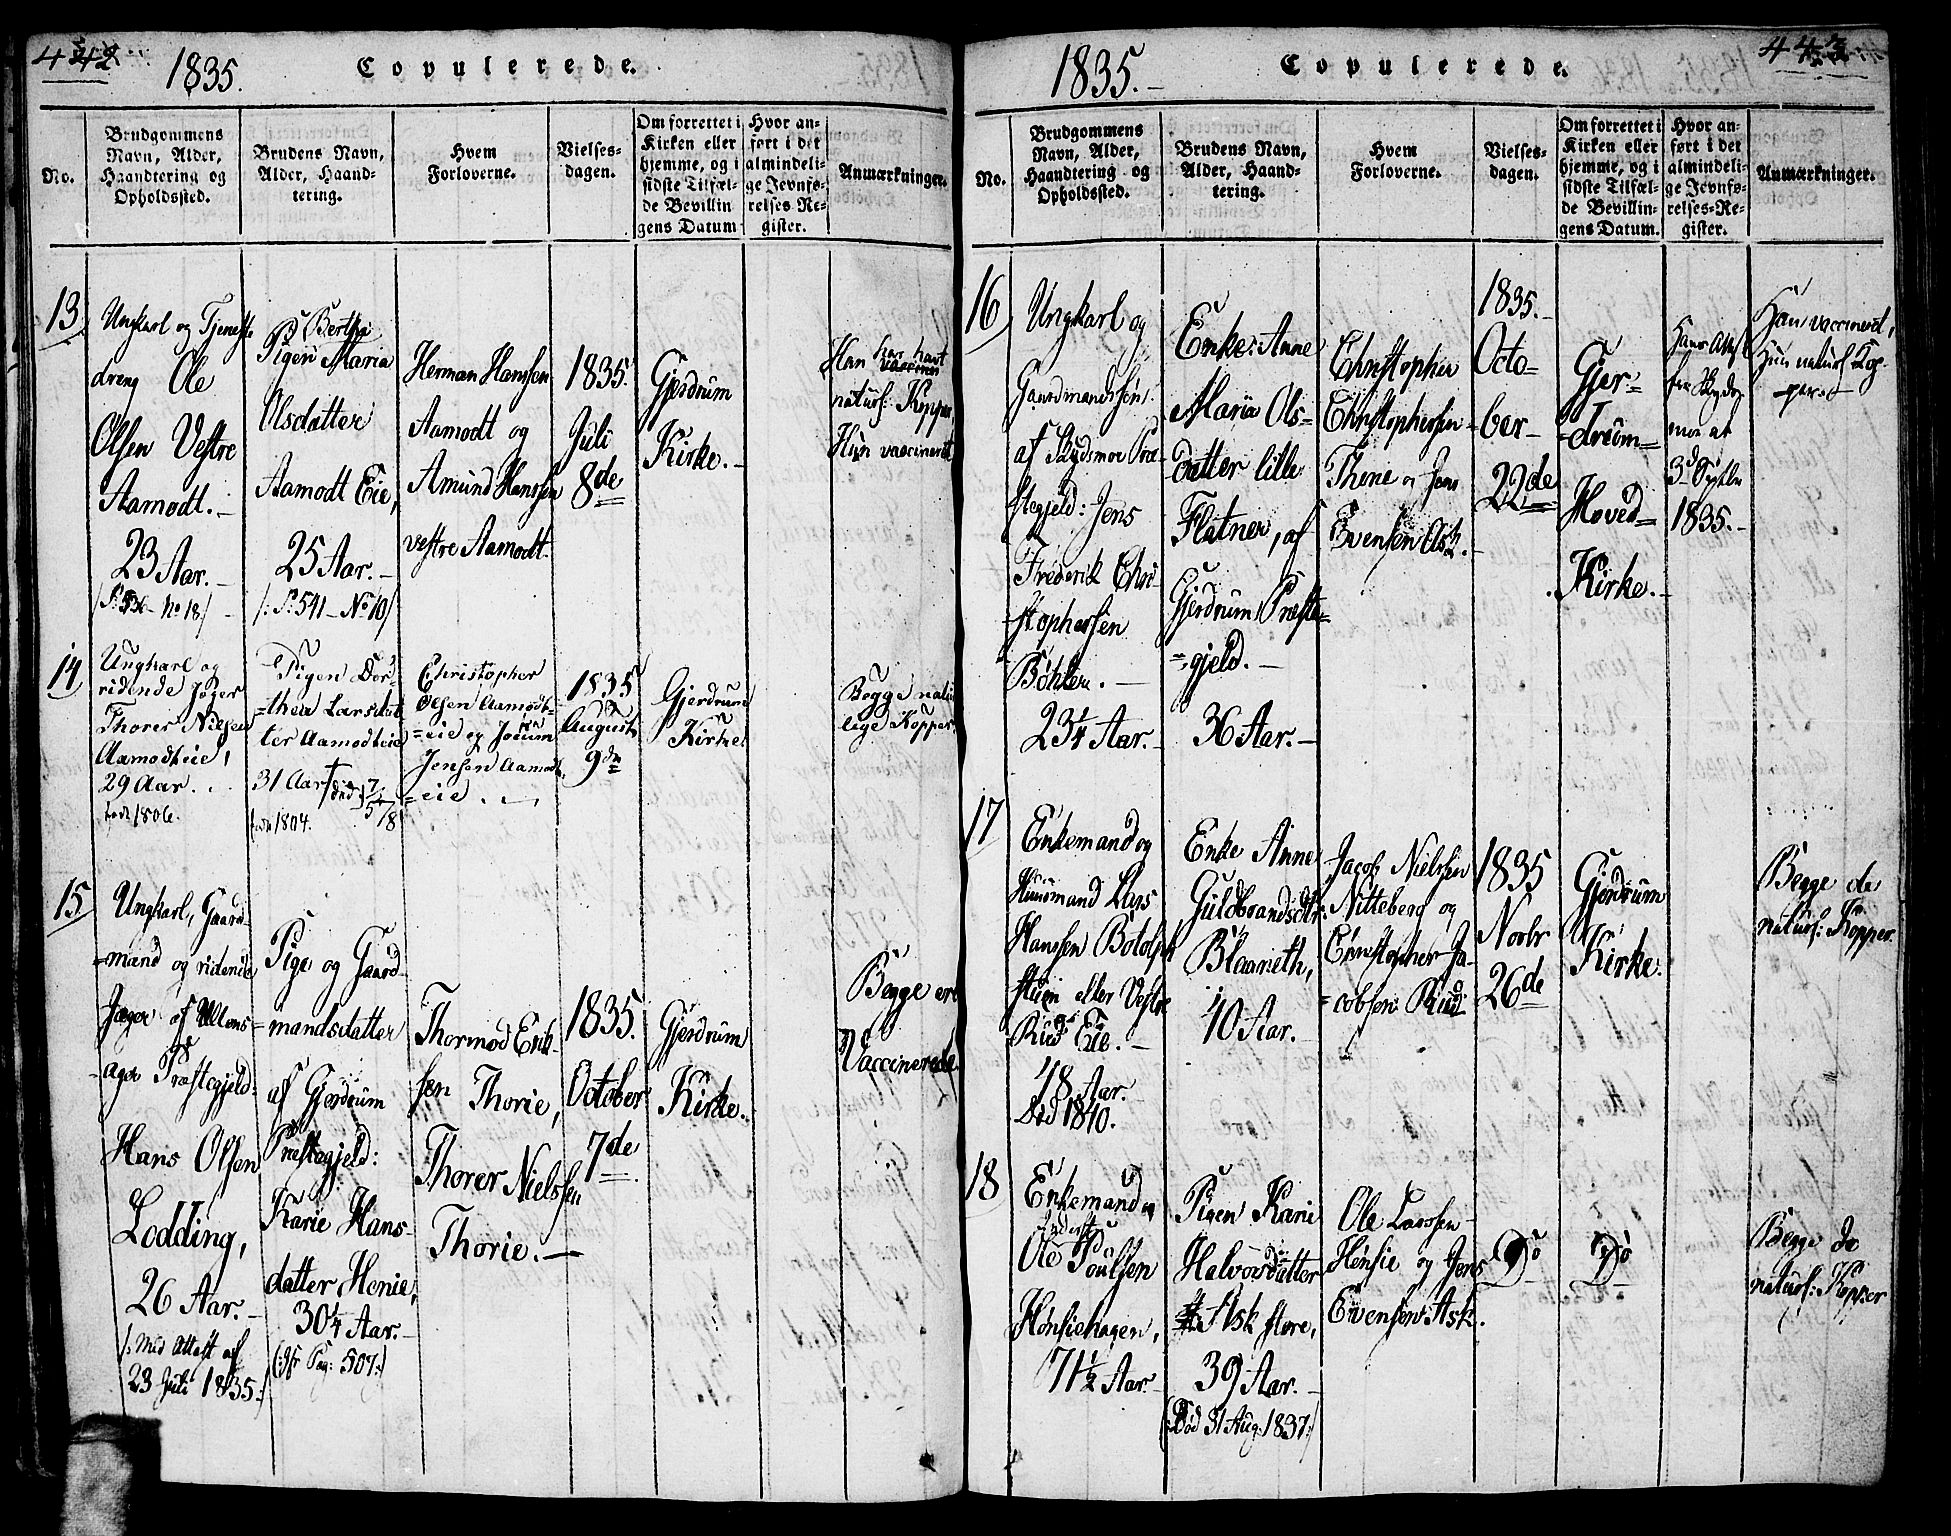 442
1835.
Copulerede.
No.
Brudgommens
Navn, Alder,
Haandtering og
Opholdssted.
Brudens Navn,
Alder, Haand-
tering.
Hvem
Forloverne.
Vielses-
dagen.
Om forrettet i
Kirken eller
hjemme, og i
sidste Tilfæl-
de Bevillin
gens Datum
Hvor an-
ført i det
almindeli-
ge Jevnfø-
relses-Re-
gister.
Anmærkninger.
13
Ungkarl og Tjeneste
dreng Ole
Olsen Vestre
Aamodt.
23 Aar.
No 18
Bertha
Pigen Maria
Olsdatter
Aamodt Eie,
25 Aar.
/: P: 541 - No 10/
Herman Hanssen
Aamodt og
Amund Hanssen
vestre Aamodt.
1835.
Juli
8de
Gjerdrum
Kirke.
Han har havt
naturl: Kopper,
Hun vaccineret
14
Ungkarl og
ridende Jæger
Thorer Nielsen
Aamodteie,
29 Aar.
født 1806.
Pigen Dor-
thea Larsdat
ter Aamodteie
31 Aar
født 1804.
Christopher
Olsen Aamodt-
=eie og
Jensen Aamodt
=eie.
1835
August
9de
Gjerdrum
Kirke
Begge natur
lige Kopper.
15
Ungkarl, Gaard
=mand og ridende
Jæger af Ullens-
ager Præstegjeld:
Hans Olsen
Lodding,
26 Aar.
/: Med Attest af
23 Juli 1835:/
Pige og Gaard
=mandsdatter
af Gjerdrum
Præstegjeld:
Karie Hans-
datter Hønie,
30¼ Aar.
(: Pag: 507:)
Thormod Erik-
sen Thorie,
Thorer Nielssen
Thorie.
1835.
October
7de
Gjerdrum
Kirke.
Begge ere
Vaccinerede
443
1835.
Copulerede.
No.
Brudgommens
Navn, Alder,
Haandtering og
Opholdssted.
Brudens Navn,
Alder, Haand-
tering.
Hvem
Forloverne.
Vielses-
dagen.
Om forrettet i
Kirken eller
hjemme, og i
sidste Tilfæl-
de Bevillin-
gens Datum.
Hvor an-
ført i det
almindeli-
ge Jevnfø-
relses-Re-
gister.
Anmærkninger.
16
Ungkarl og
Gaardmandssøn
af Skydsmoe Præ-
stegjeld: Jens
Frederik Chri-
stophersen
Böhler.
23¼ Aar.
Enke: Anne
Maria Ols-
datter lille
Flatner, af
Gjerdrum Præste-
=gjeld.
36 Aar.
Christopher
Christophersen
og Jens
Evensen
1835.
Octo-
ber
22de
Gjer-
=drum
Hoved-
Kirke.
Hans Attest
fra
moe af
3d Septbr
1835.
Han vaccineret,
Hun naturl: Kop-
per.
17
Enkemand og
Huusmand Lars
Hanssen Botolph
stuen eller Vestre
Rud Eie.
48 Aar.
Død 1840.
Enke Anne
Guldbrandsdtr:
40 Aar.
Jacob Nielssen
Nitteberg og
Christopher Ja-
=cobsen Rud
1835
Novbr
26de
Gjerdrum
Kirke.
Begge de
naturl: Kopper.
18
Enkemand og
Ole Poulsen
Hönsiehagen,
71½ Aar.
Pigen Karie
Halvorsdatter
Ask store,
39 Aar.
(Död 31 Aug: 1837:/
Ole Larssen
Hönsie og Jens
Evensen Ask.
Dº
Dº
Begge de
naturl: Kopper